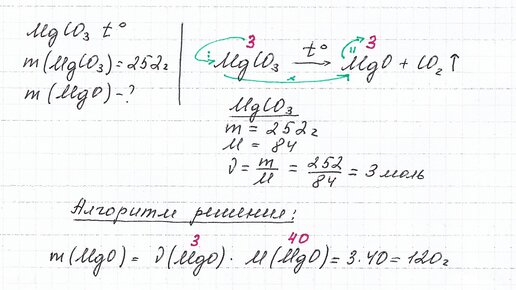 MgCO₃ t°
m(MgCO₃) = 252г
m(MgO) - ?
3 3
MgCO₃ t° → MgO + CO₂↑
MgCO₃
m = 252г
M = 84
ν = m/M = 252/84 = 3 моль
Алгоритм решения:
3 40
m(MgO) = ν(MgO) · M(MgO) = 3 · 40 = 120г